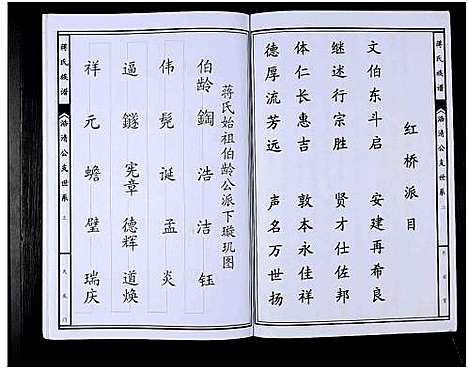 蒋氏族谱
浩清公支世系
红桥派目
文伯东斗启 安建再希良
继述行宗胜 贤才仕佐邦
体仁长惠吉 敦本永佳祥
德厚流芳远 声名万世扬
蒋氏始祖伯龄公派下璇玑图
伯龄 鍧 浩 洁 钰
伟 髡 诞 孟 炎
逼 鐩 宪章 德辉 道焕
祥 元 蟾 璧 瑞庆
蒋氏族谱
浩清公支世系 上